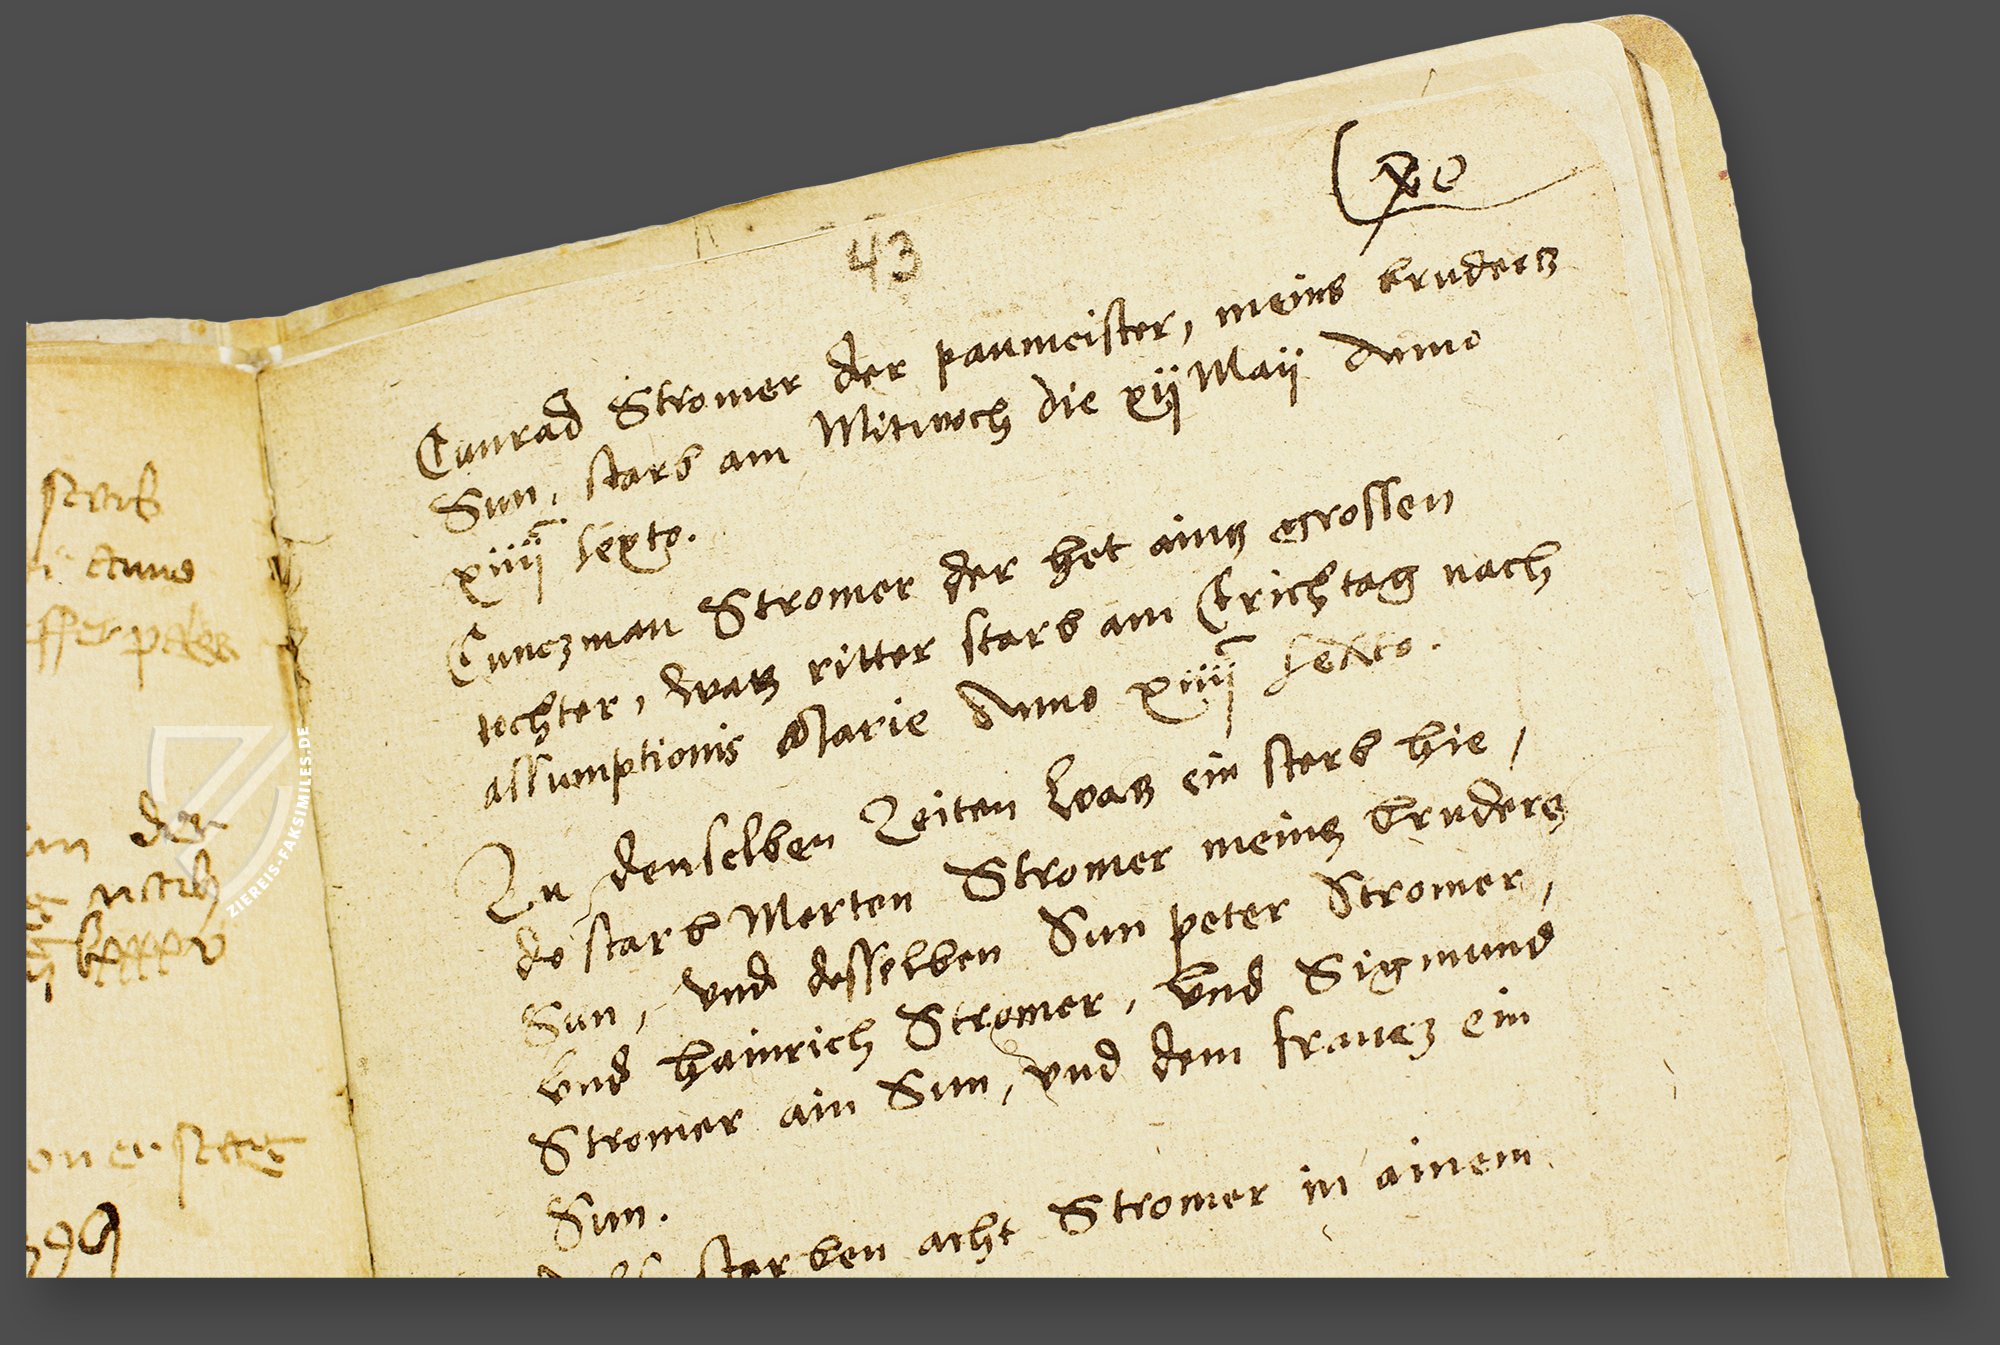 sterb
der
nach
43
Cunrad Stromer der paumeister, meins bruders
Sun, starb am Mitwoch die xij Maij Anno
xiiij sexto.
Cunczman Stromer der het ains grossen
tochter, waz ritter starb am Erichtag nach
assumptionis Marie Anno xiiij sexto.
Zu denselben Zeiten waz ein sterb hie,
do starb Merten Stromer meins bruders
Sun, vnd desselben Sun peter Stromer,
vnd hainrich Stromer, vnd Sigmund
Stromer ain Sun, vnd dem francz ein
Sun.
starben acht Stromer in ainem
ZIEREIS-FAKSIMILES.DE